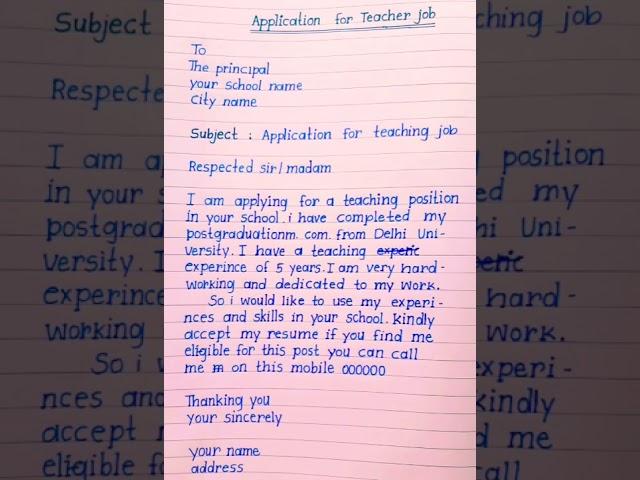 Application for Teacher job
To
The principal
your school name
City name
Subject : Application for teaching job
Respected sir/madam
I am applying for a teaching position
in your school. i have completed my
postgraduationm. com. from Delhi Uni-
versity. I have a teaching experic
experince of 5 years. I am very hard-
working and dedicated to my work.
So i would like to use my experi-
nces and skills in your school. Kindly
accept my resume if you find me
eligible for this post you can call
me m on this mobile 000000
Thanking you
your sincerely
your name
address